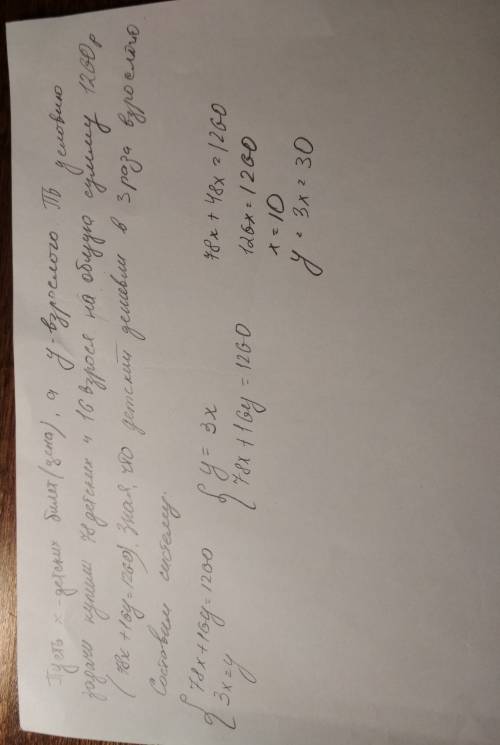 Пусть x - детских билет (цена), а y - взрослого По условию
задачи купили 78 детских и 16 взросл на общую сумму 1260 р
(78x + 16y = 1260). Зная, что детский дешевле в 3 раза взрослого
Составим систему.
{ 78x + 16y = 1260
3x = y
{ y = 3x
78x + 16y = 1260
78x + 48x = 1260
126x = 1260
x = 10
y = 3x = 30